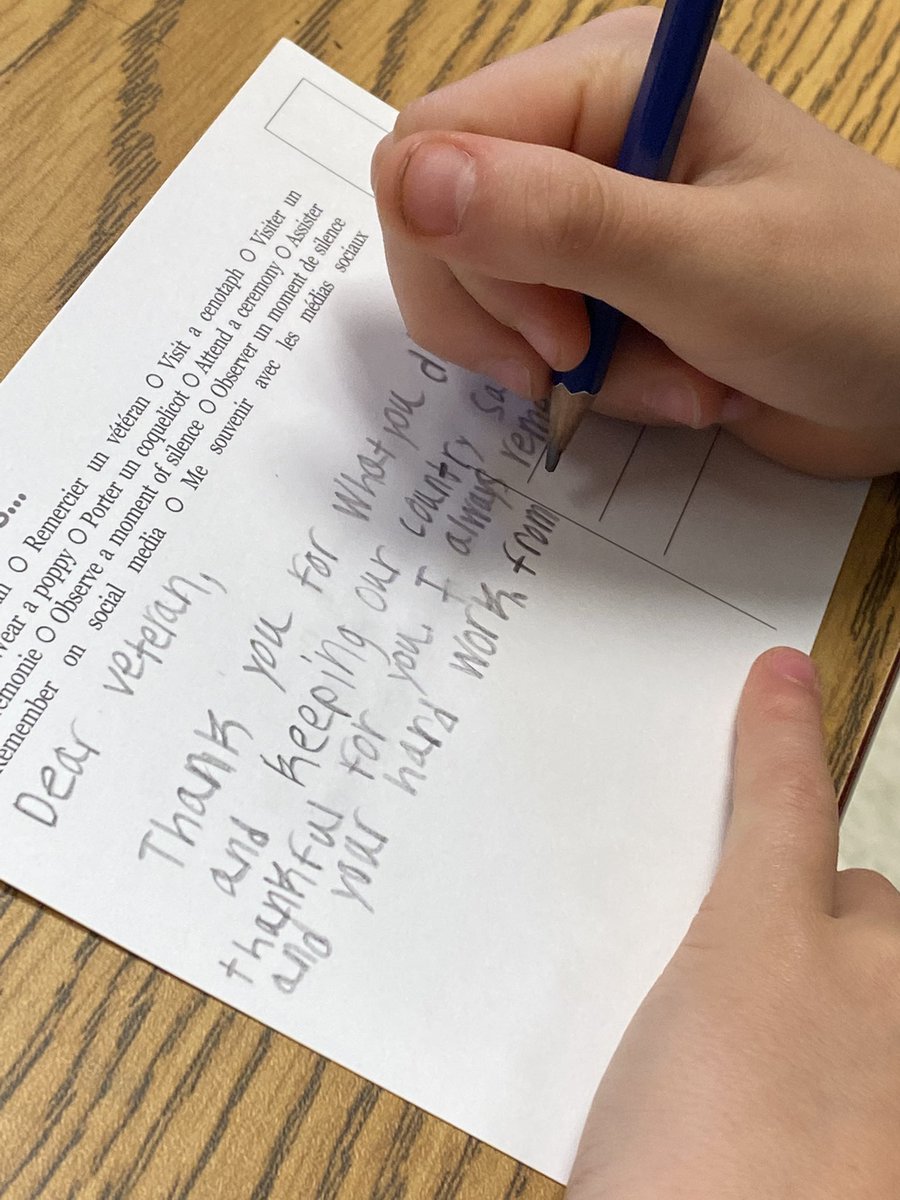 O Remercier un vétéran O Visit a cenotaph O Visiter un
a poppy O Porter un coquelicot O Attend a ceremony O Assister
O Observe a moment of silence O Observer un moment de silence
Remember on social media O Me souvenir avec les médias sociaux
Dear veteran,
Thank you for what you
and keeping our country
thankful for you. I always
and your hard work from